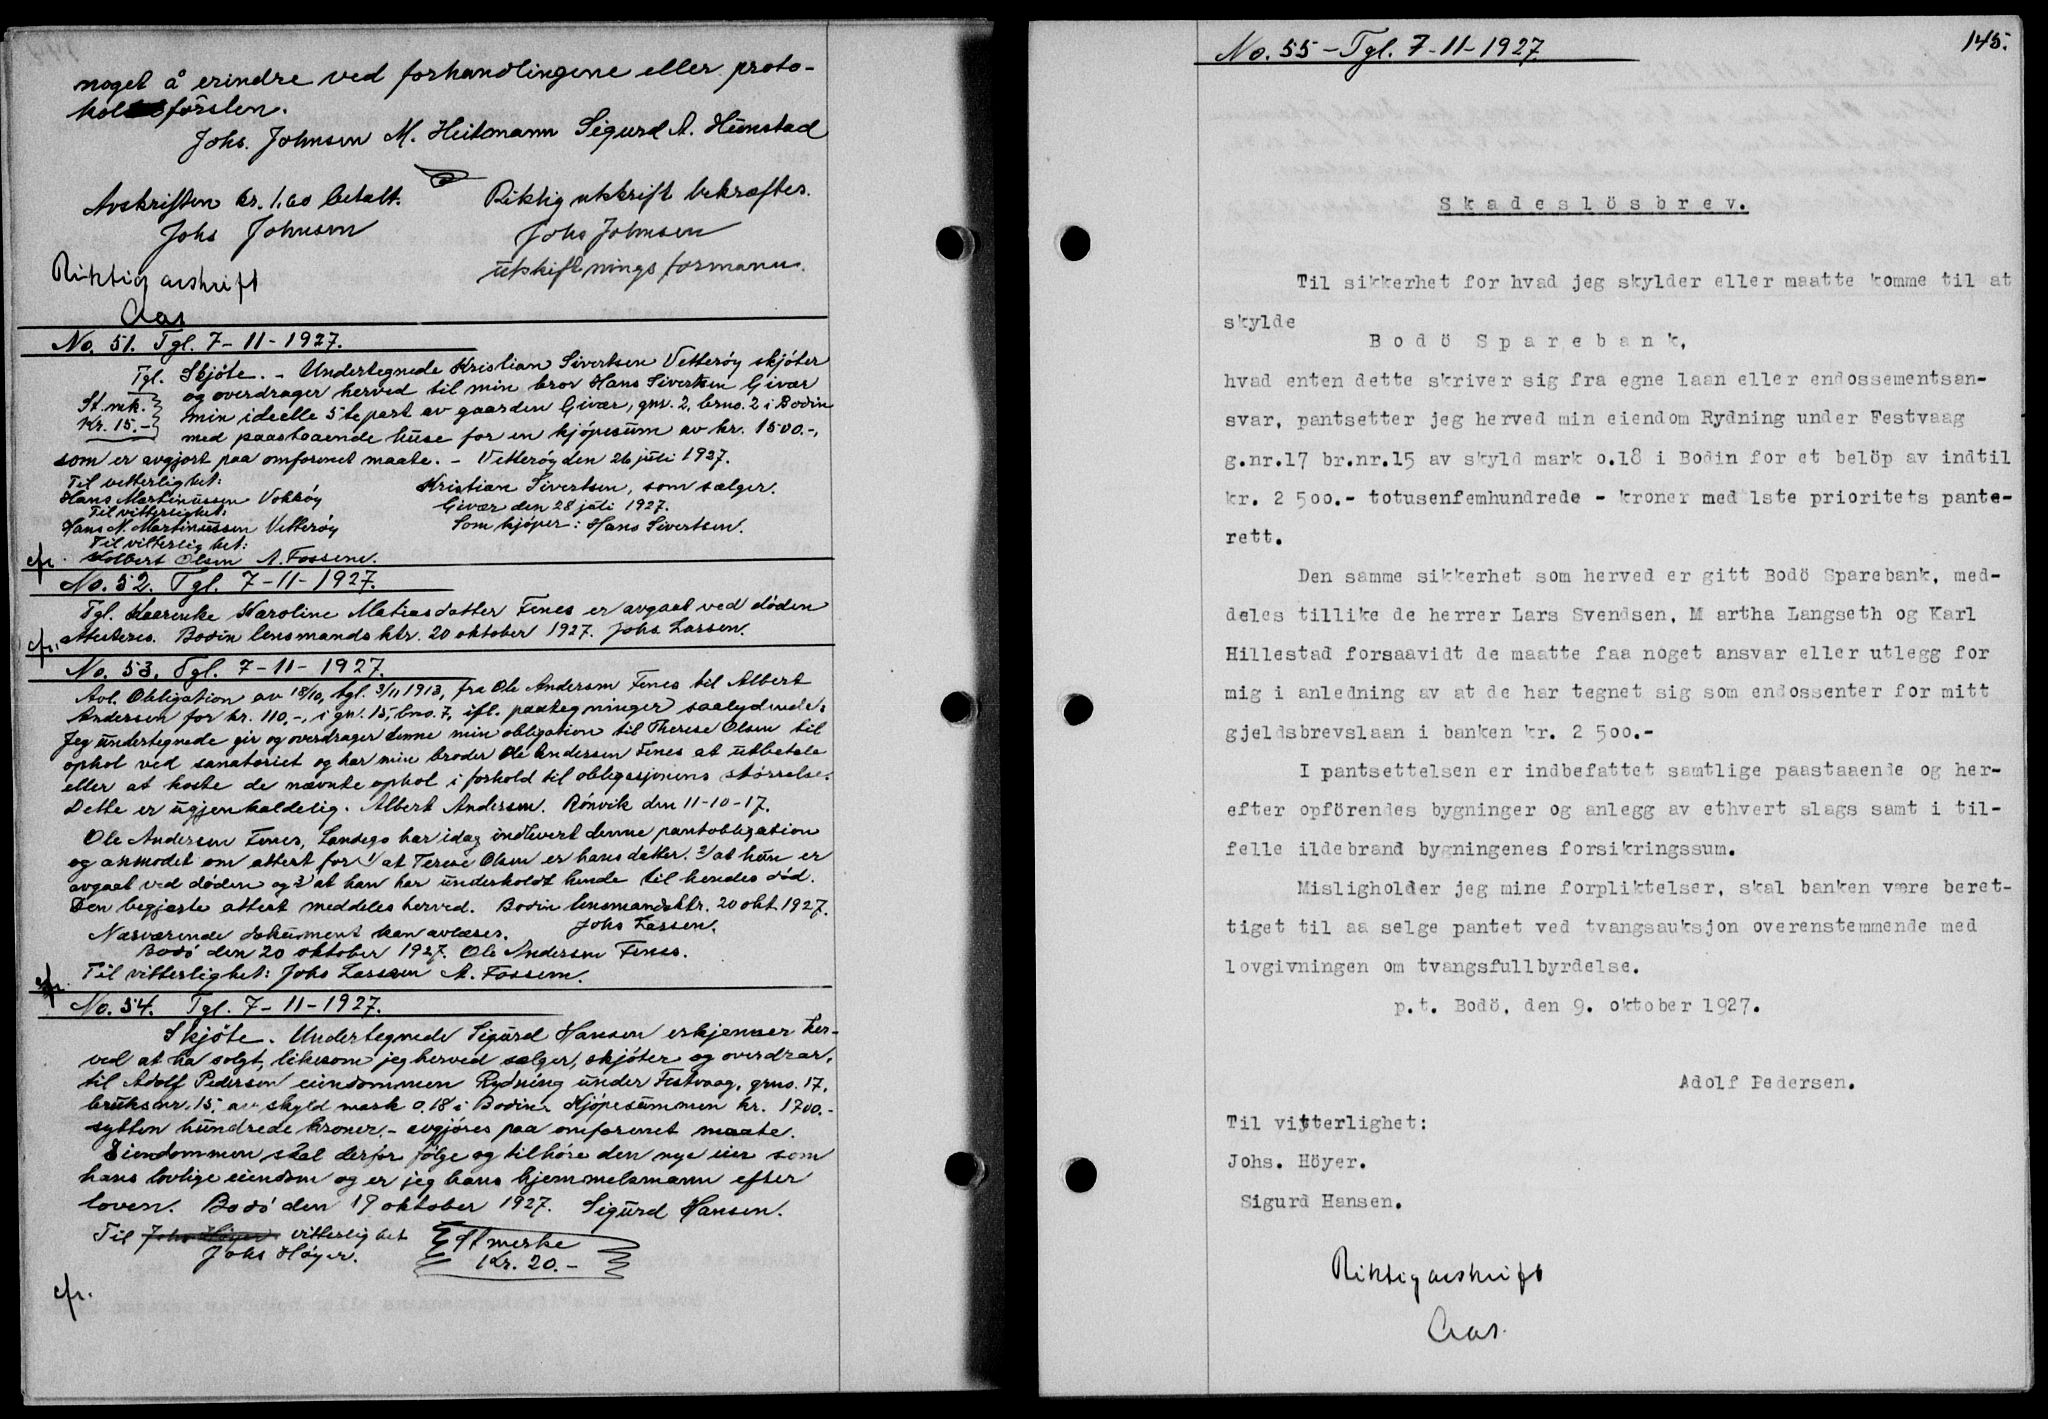 noget å erindre ved forhandlingene eller proto-
førslen.
Johs. Johnsen M. Heitmann Sigurd A. Hunstad
Avskriften kr. 1.60 betalt.
Johs Johnsen
Riktig utskrift bekræftes.
Johs Johnsen
utskiftningsformann.
Riktig avskrift
Aas
No. 51. Tgl. 7-11-1927.
Tgl. Skjöte. - Undertegnede Kristian Sivertsen Vetteröy skjöter
og overdrager herved til min bror Hans Sivertsen Givær
min ideelle 5te part av gaarden Givær, gnr. 2, brno. 2 i Bodin
med paastaaende huse for en kjöpesum av kr. 1500.-,
St. mk.
Kr. 15.-
som er avgjort paa omforenet maate. - Vetteröy den 26 juli 1927.
Til vitterlighet:
Kristian Sivertsen, som sælger.
Hans Martinussen
Givær den 28 juli 1927.
Til vitterlighet:
Som kjöper: Hans Sivertsen.
Hans M. Martinussen Vetteröy
Til vitterlighet:
cfr. Kolbert Olsen A. Fossem.
No. 52. Tgl. 7-11-1927.
Tgl. Karoline Matiasdatter Fenes er avgaat ved döden
attesteres. Bodin lensmandsktr. 20 oktober 1927. Johs Larsen.
cfr.
No. 53. Tgl. 7-11-1927.
Avl. Obligation av 18/10, tgl. 3/11 1913, fra Ole Andersen Fenes til Albert
Andersen for kr. 110.-, i gnr. 15, bno. 7, ifl. paategninger saalydende:
Jeg undertegnede gir og overdrager denne min obligation til Therese Olsen til
ophol ved sanatoriet og har min broder Ole Andersen Fenes at utbetale
eller at koste de nævnte ophol i forhold til obligasjonens störrelse.
Dette er ugjenkaldelig. Albert Andersen. Rönvik den 11-10-17.
Ole Andersen Fenes, Landego har idag indlevert denne pantobligation
og anmodet om attest for 1) at Terese Olsen er hans datter. 2) at hun er
avgaat ved döden og 3) at han har underholdt hende til hendes död.
Den begjærte attest meddeles herved. Bodin lensmandsktr. 20 okt. 1927.
Johs Larsen.
Nærværende dokument kan avlæses.
Bodö den 20 oktober 1927. Ole Andersen Fenes.
Til vitterlighet: Johs Larsen A. Fossem.
cfr.
No. 54. Tgl. 7-11-1927.
Skjöte. Undertegnede Sigurd Hansen erkjenner her-
ved at ha solgt, likesom jeg herved sælger, skjöter og overdrar,
til Adolf Pedersen eiendommen Rydning under Festvaag, grno. 17,
bruksnr. 15, av skyld mark 0.18 i Bodin. Kjöpesummen kr. 1700.-
sytten hundrede kroner, - avgjöres paa omforenet maate.
Eiendommen skal derfor fölge og tilhöre den nye eier som
hans lovlige eiendom og er jeg hans hjemmelsmann efter
loven. Bodö den 19 oktober 1927. Sigurd Hansen.
Til Johs Höyer vitterlighet
Johs Höyer.
St merke
Kr. 20.-
cfr.
No. 55 - Tgl. 7-11-1927.
145.
Skadeslösbrev.
Til sikkerhet for hvad jeg skylder eller maatte komme til at
skylde
Bodö Sparebank,
hvad enten dette skriver sig fra egne laan eller endossementsan-
svar, pantsetter jeg herved min eiendom Rydning under Festvaag
g.nr.17 br.nr.15 av skyld mark o.18 i Bodin for et belöp av indtil
kr. 2 500.- totusenfemhundrede - kroner med 1ste prioritets pante-
rett.
Den samme sikkerhet som herved er gitt Bodö Sparebank, med-
deles tillike de herrer Lars Svendsen, M artha Langseth og Karl
Hillestad forsaavidt de maatte faa noget ansvar eller utlegg for
mig i anledning av at de har tegnet sig som endossenter for mitt
gjeldsbrevslaan i banken kr. 2 500.-
I pantsettelsen er indbefattet samtlige paastaaende og her-
efter opförendes bygninger og anlegg av ethvert slags samt i til-
felle ildebrand bygningenes forsikringssum.
Misligholder jeg mine forpliktelser, skal banken være beret-
tiget til aa selge pantet ved tvangsauksjon overenstemmende med
lovgivningen om tvangsfullbyrdelse.
p.t. Bodö, den 9. oktober 1927.
Adolf Pedersen.
Til vitterlighet:
Johs. Höyer.
Sigurd Hansen.
Riktig avskrift
Aas.